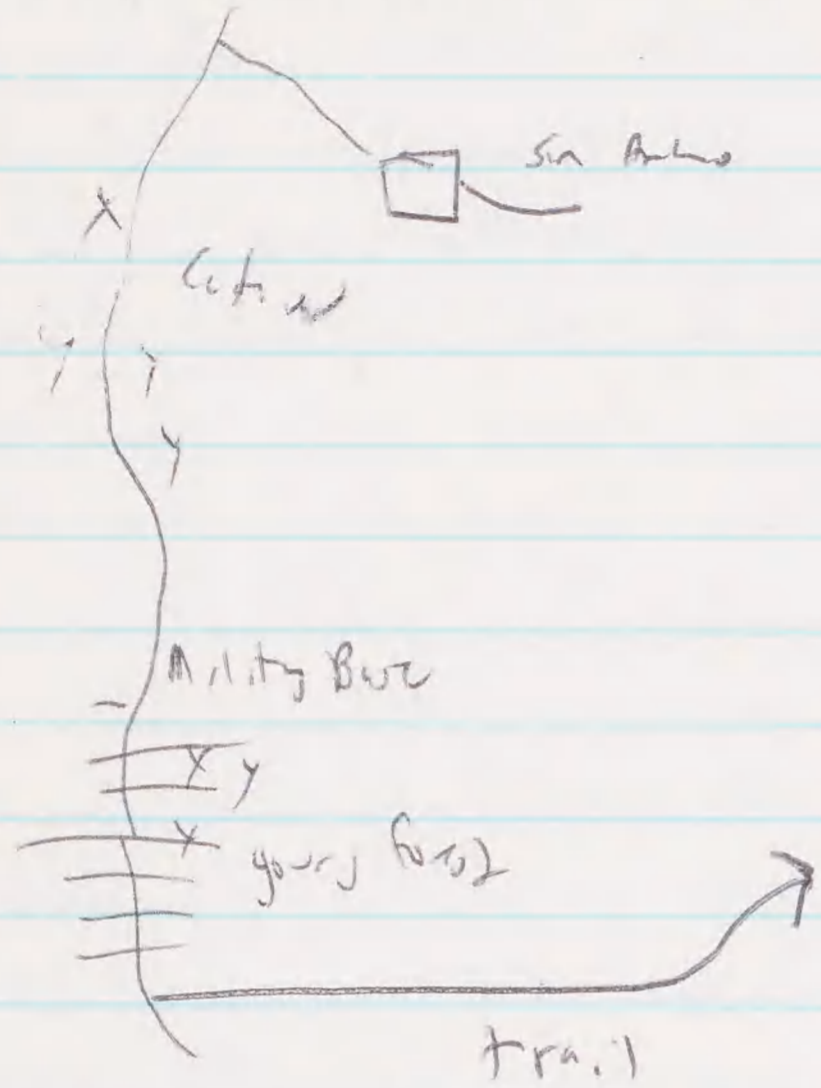 San
X
y
y
y
Military Base
X y
X
young forest
trail